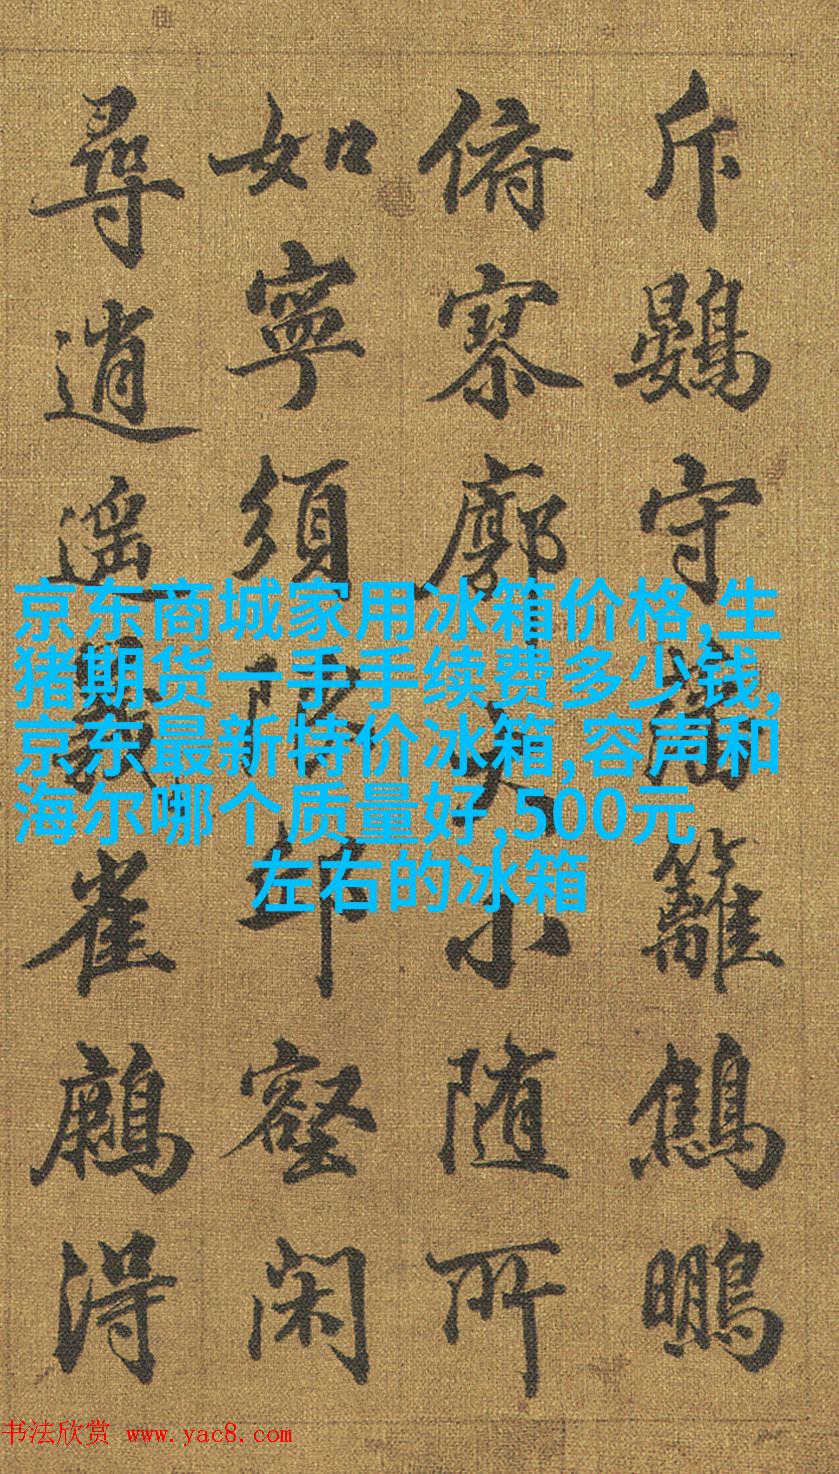 斥鷃守籬鷦䳟
俯寥廓小随所
如寧須邱壑闲
尋逍遥雀得
京东商城家用冰箱价格,生
猪期货一手手续费多少钱,
京东最新特价冰箱,容声和
海尔哪个质量好,500元
左右的冰箱
书法欣赏 www.yac8.com